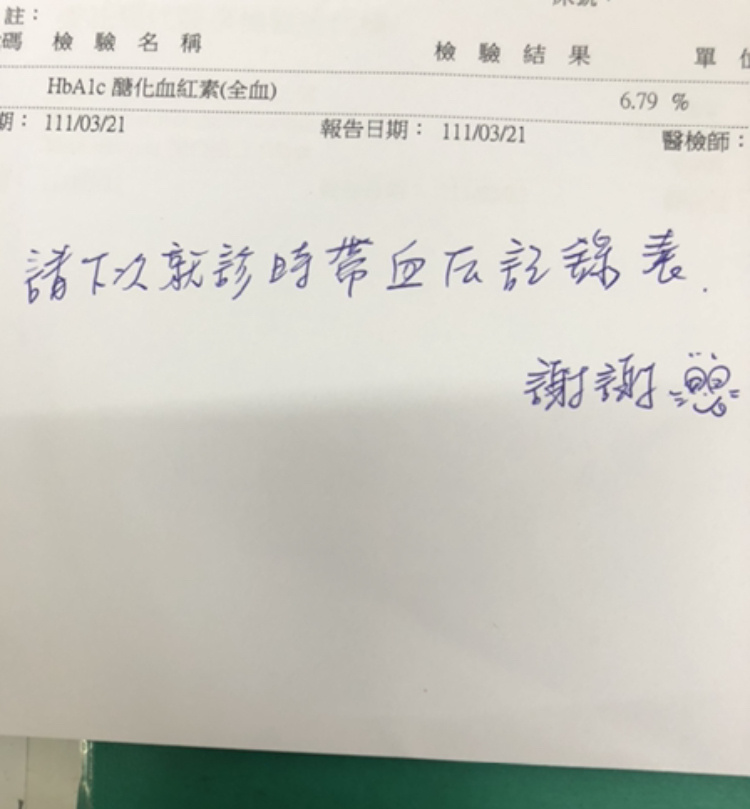 註：
碼 檢驗名稱 檢驗結果 單位
HbA1c 醣化血紅素(全血) 6.79 %
期： 111/03/21 報告日期： 111/03/21 醫檢師：
請下次就診時帶血压記錄表.
謝謝